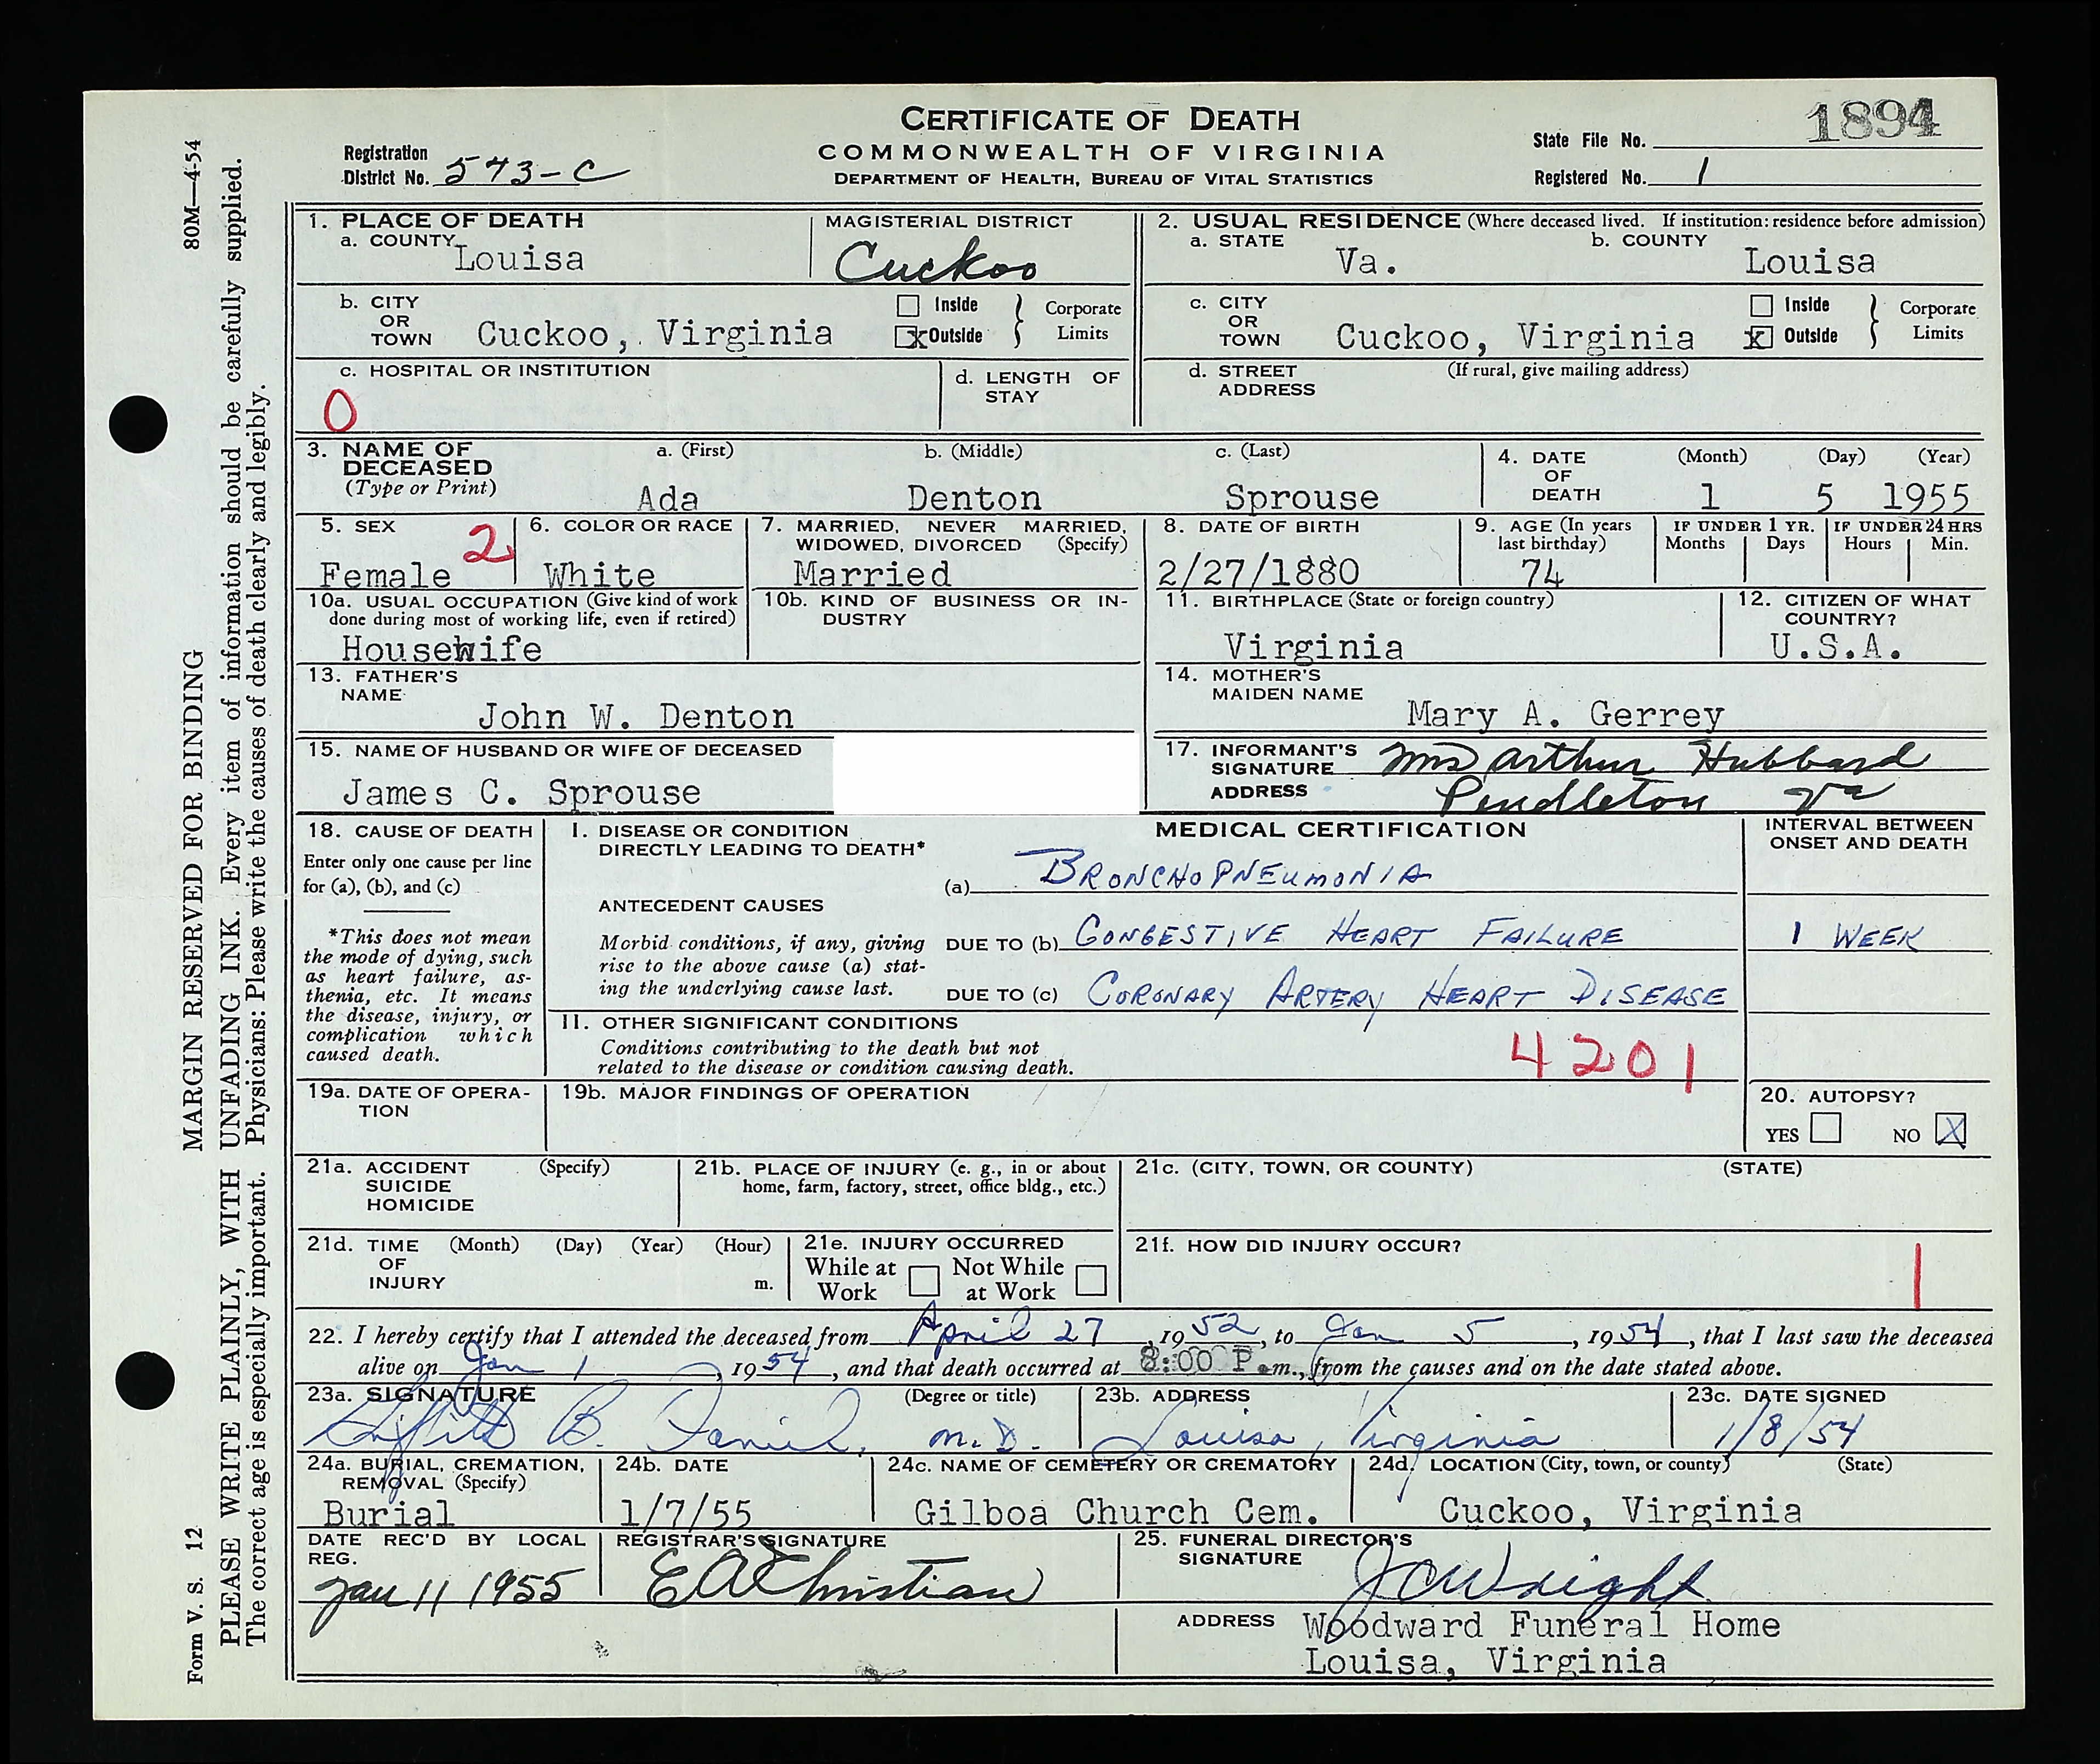 CERTIFICATE OF DEATH
COMMONWEALTH OF VIRGINIA
DEPARTMENT OF HEALTH, BUREAU OF VITAL STATISTICS
Registration District No. 573-C
State File No. 1894
Registered No. 1
80M—4-54
MARGIN RESERVED FOR BINDING
PLEASE WRITE PLAINLY, WITH UNFADING INK. Every item of information should be carefully supplied.
The correct age is especially important. Physicians: Please write the causes of death clearly and legibly.
Form V. S. 12
1. PLACE OF DEATH
a. COUNTY Louisa
MAGISTERIAL DISTRICT Cuckoo
2. USUAL RESIDENCE (Where deceased lived. If institution: residence before admission)
a. STATE Va.
b. COUNTY Louisa
b. CITY OR TOWN Cuckoo, Virginia
Inside
x Outside
Corporate Limits
c. CITY OR TOWN Cuckoo, Virginia
Inside
x Outside
Corporate Limits
c. HOSPITAL OR INSTITUTION
0
d. LENGTH OF STAY
d. STREET ADDRESS (If rural, give mailing address)
3. NAME OF DECEASED (Type or Print)
a. (First) Ada
b. (Middle) Denton
c. (Last) Sprouse
4. DATE OF DEATH (Month) (Day) (Year)
1 5 1955
5. SEX Female 2
6. COLOR OR RACE White
7. MARRIED, NEVER MARRIED, WIDOWED, DIVORCED (Specify) Married
8. DATE OF BIRTH 2/27/1880
9. AGE (In years last birthday) 74
IF UNDER 1 YR. Months Days
IF UNDER 24 HRS Hours Min.
10a. USUAL OCCUPATION (Give kind of work done during most of working life, even if retired)
Housewife
10b. KIND OF BUSINESS OR INDUSTRY
11. BIRTHPLACE (State or foreign country) Virginia
12. CITIZEN OF WHAT COUNTRY? U.S.A.
13. FATHER'S NAME John W. Denton
14. MOTHER'S MAIDEN NAME Mary A. Gerrey
15. NAME OF HUSBAND OR WIFE OF DECEASED
James C. Sprouse
17. INFORMANT'S SIGNATURE Mrs Arthur Hubbard
ADDRESS Pendleton Va
18. CAUSE OF DEATH
Enter only one cause per line for (a), (b), and (c)
*This does not mean the mode of dying, such as heart failure, asthenia, etc. It means the disease, injury, or complication which caused death.
MEDICAL CERTIFICATION
INTERVAL BETWEEN ONSET AND DEATH
I. DISEASE OR CONDITION DIRECTLY LEADING TO DEATH*
(a) BRONCHOPNEUMONIA
ANTECEDENT CAUSES
Morbid conditions, if any, giving rise to the above cause (a) stating the underlying cause last.
DUE TO (b) CONGESTIVE HEART FAILURE
1 WEEK
DUE TO (c) CORONARY ARTERY HEART DISEASE
II. OTHER SIGNIFICANT CONDITIONS
Conditions contributing to the death but not related to the disease or condition causing death.
4201
19a. DATE OF OPERATION
19b. MAJOR FINDINGS OF OPERATION
20. AUTOPSY?
YES NO X
21a. ACCIDENT SUICIDE HOMICIDE (Specify)
21b. PLACE OF INJURY (e. g., in or about home, farm, factory, street, office bldg., etc.)
21c. (CITY, TOWN, OR COUNTY) (STATE)
21d. TIME OF INJURY (Month) (Day) (Year) (Hour) m.
21e. INJURY OCCURRED
While at Work Not While at Work
21f. HOW DID INJURY OCCUR?
1
22. I hereby certify that I attended the deceased from April 27, 1952, to Jan 5, 1954, that I last saw the deceased
alive on Jan 1, 1954, and that death occurred at 8:00 P.m., from the causes and on the date stated above.
23a. SIGNATURE (Degree or title)
Griffith B. Daniel, M.D.
23b. ADDRESS Louisa, Virginia
23c. DATE SIGNED 1/8/54
24a. BURIAL, CREMATION, REMOVAL (Specify) Burial
24b. DATE 1/7/55
24c. NAME OF CEMETERY OR CREMATORY Gilboa Church Cem.
24d. LOCATION (City, town, or county) (State) Cuckoo, Virginia
DATE REC'D BY LOCAL REG. Jan 11 1955
REGISTRAR'S SIGNATURE E A Christian
25. FUNERAL DIRECTOR'S SIGNATURE J C Wright
ADDRESS Woodward Funeral Home
Louisa, Virginia